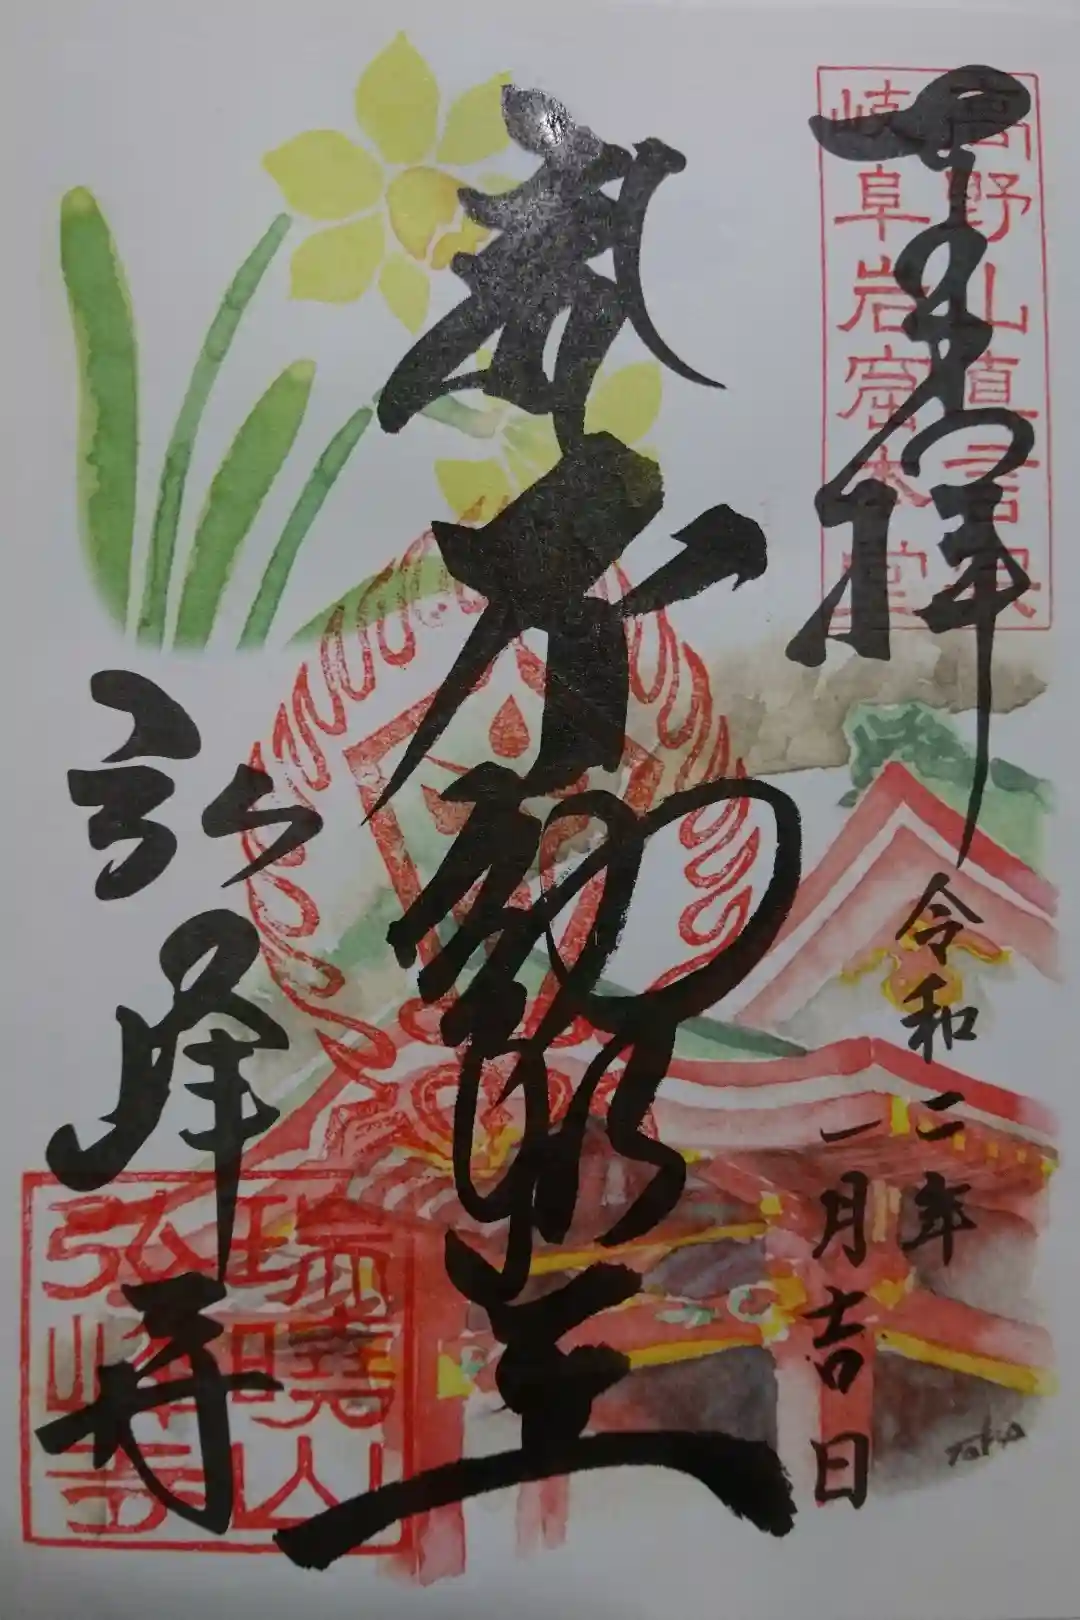 奉拝
高野山真言宗
岐阜岩窟本堂
令和二年
一月吉日
不動明王
弘峰寺
瑞暁山
弘峰寺